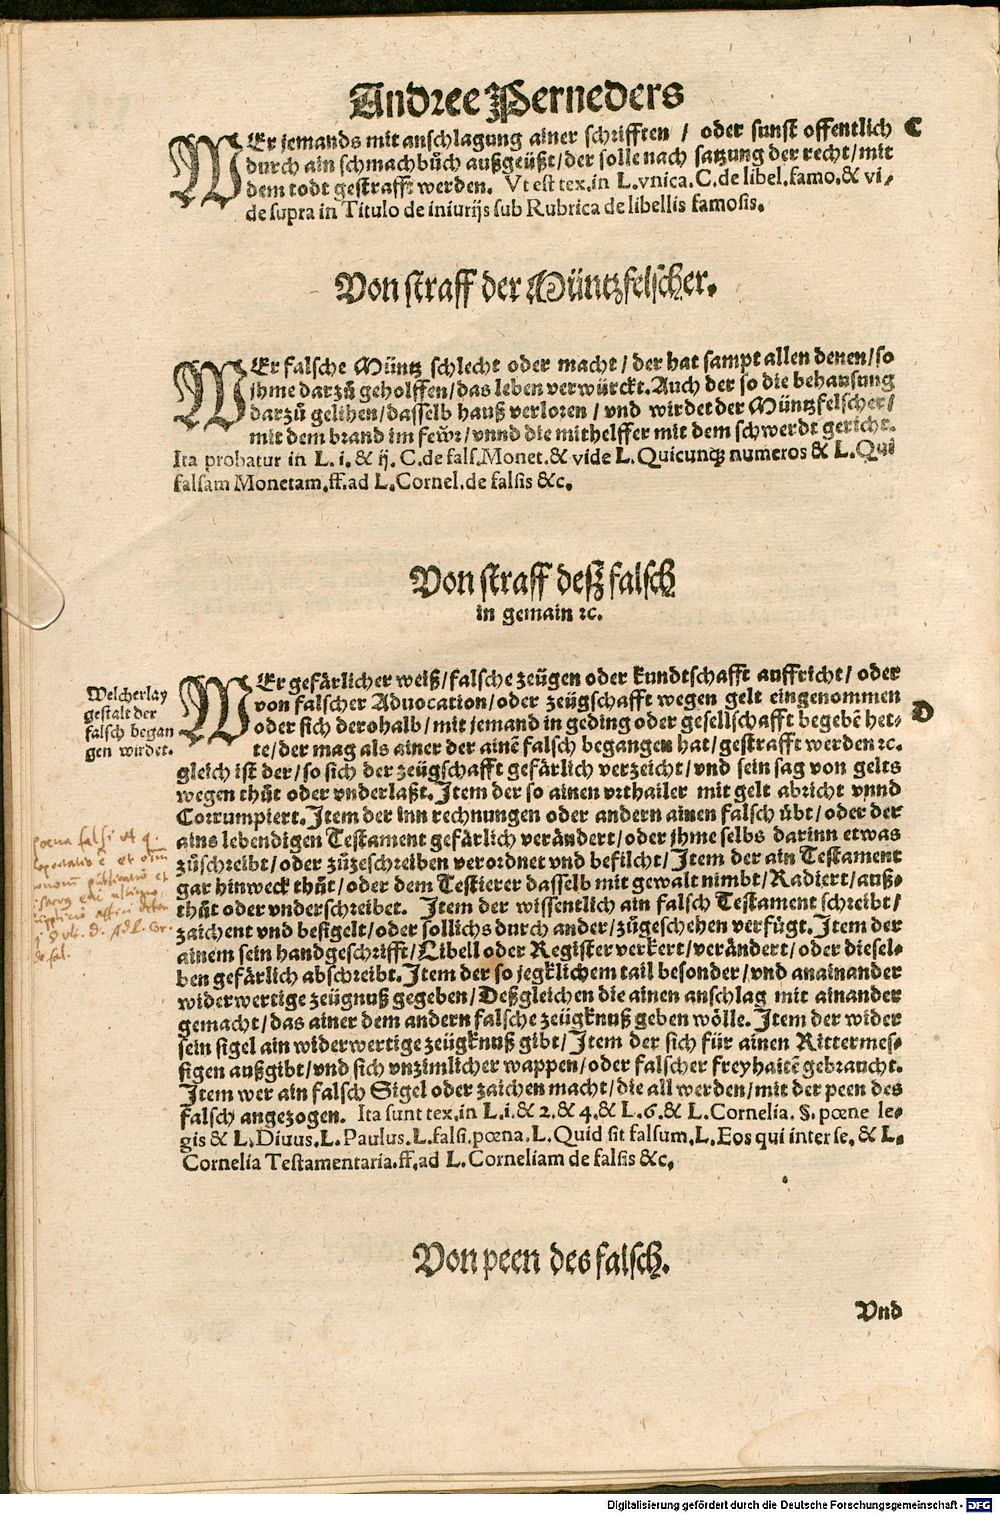 Andree Perneders
WEr jemands mit anschlagung ainer schrifften / oder sunst offentlich C
durch ain schmachbůch außgeüßt / der solle nach satzung der recht / mit
dem todt gestrafft werden. Vt est tex. in L. vnica. C. de libel. famo. & vi-
de supra in Titulo de iniurijs sub Rubrica de libellis famosis.
Von straff der Müntzfelscher.
WEr falsche Müntz schlecht oder macht / der hat sampt allen denen / so
jhme darzů geholffen / das leben verwürckt. Auch der so die behausung
darzů gelihen / dasselb hauß verloren / vnd wirdet der Müntzfelscher /
mit dem brand im fewr / vnnd die mithelffer mit dem schwerdt gericht.
Ita probatur in L. i. & ij. C. de fals. Monet. & vide L. Quicunq; numeros & L. Qui
falsam Monetam. ff. ad L. Cornel. de falsis &c.
Von straff deß falsch
in gemain ꝛc.
Welcherlay
gestalt der
falsch began
gen wirdet.
WEr gefärlicher weiß / falsche zeügen oder kundtschafft auffricht / oder
von falscher Aduocation / oder zeügschafft wegen gelt eingenommen D
oder sich derohalb / mit jemand in geding oder gesellschafft begebē het-
te / der mag als ainer der ainē falsch begangen hat / gestrafft werden ꝛc.
gleich ist der / so sich der zeügschafft gefärlich verzeicht / vnd sein sag von gelts
wegen thůt oder vnderlaßt. Item der so ainen vrthailer mit gelt abricht vnnd
Corrumpiert. Item der inn rechnungen oder andern ainen falsch übt / oder der
ains lebendigen Testament gefärlich verändert / oder jhme selbs darinn etwas
zůschreibt / oder zůzeschreiben verordnet vnd befilcht / Item der ain Testament
gar hinweck thůt / oder dem Testierer dasselb mit gewalt nimbt / Radiert / auß-
thůt oder vnderschreibet. Item der wissentlich ain falsch Testament schreibt /
zaichent vnd besigelt / oder sollichs durch ander / zůgeschehen verfügt. Item der
ainem sein handgeschrifft / Libell oder Register verkert / verändert / oder diesel-
ben gefärlich abschreibt. Item der so jegklichem tail besonder / vnd anainander
widerwertige zeügnuß gegeben / Deßgleichen die ainen anschlag mit ainander
gemacht / das ainer dem andern falsche zeügknuß geben wölle. Item der wider
sein sigel ain widerwertige zeügknuß gibt / Item der sich für ainen Rittermes-
sigen außgibt / vnd sich vnzimlicher wappen / oder falscher freyhaitē gebraucht.
Item wer ain falsch Sigel oder zaichen macht / die all werden / mit der peen des
falsch angezogen. Ita sunt tex. in L. i. & 2. & 4. & L. 6. & L. Cornelia. §. pœne le-
gis & L. Diuus. L. Paulus. L. falsi. pœna. L. Quid sit falsum. L. Eos qui inter se. & L.
Cornelia Testamentaria. ff. ad L. Corneliam de falsis &c.
poena falsi
Von peen des falsch.
Vnd
Digitalisierung gefördert durch die Deutsche Forschungsgemeinschaft - DFG